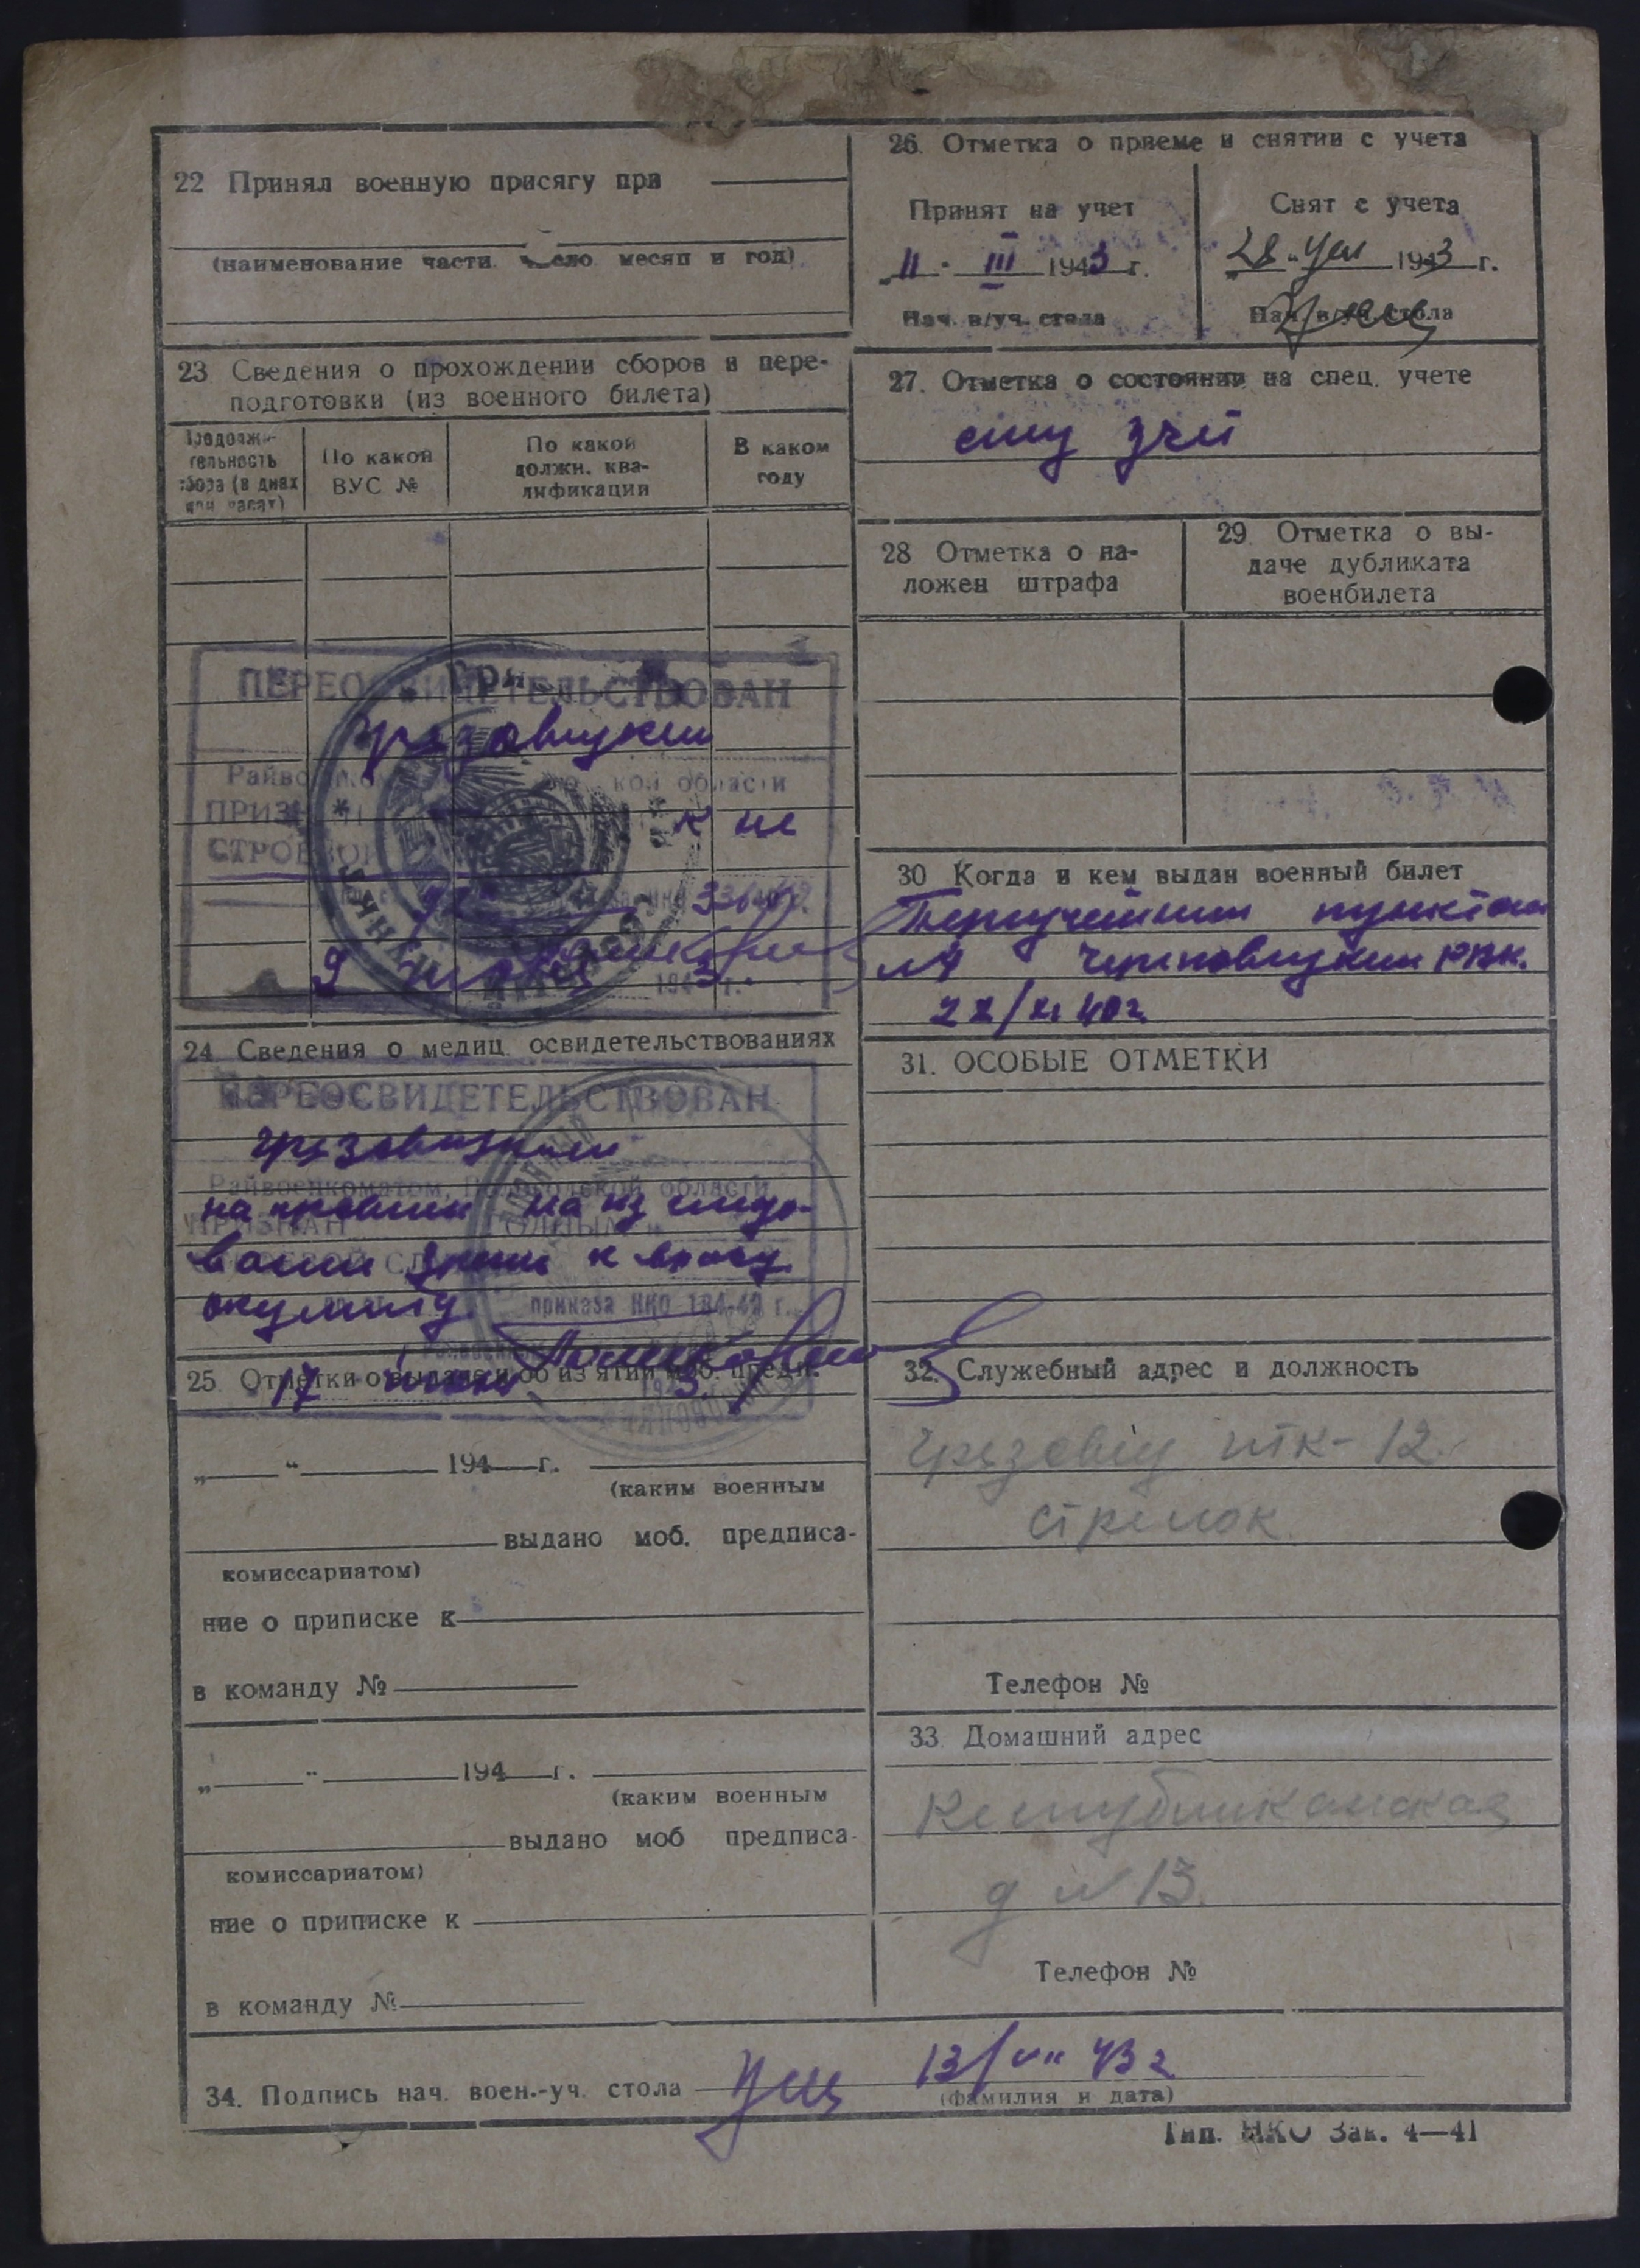 22 Принял военную присягу при
(наименование части число месяц и год)
23 Сведения о прохождении сборов и пере-
подготовки (из военного билета)
Продолжи-
тельность
сбора (в днях
или часах)
По какой
ВУС №
По какой
должн. ква-
лификации
В каком
году
ПЕРЕОСВИДЕТЕЛЬСТВОВАН
Грязовецким
Райвоенкоматом кой области
ПРИЗНАН к не
СТРОЕВОЙ
336
9 1943 г.
24 Сведения о медиц. освидетельствованиях
ПЕРЕОСВИДЕТЕЛЬСТВОВАН
Грязовецким
Райвоенкоматом, Вологодской области
ПРИЗНАН ГОДНЫМ
СТРОЕВОЙ
на
к врачу
окулисту.
приказа НКО 184-42 г.
17
25. Отметки о выдаче и об изъятии моб. предп.
„ “ 194 г.
(каким военным
выдано моб. предписа-
комиссариатом)
ние о приписке к
в команду №
„ “ 194 г.
(каким военным
выдано моб предписа-
комиссариатом)
ние о приписке к
в команду №
26. Отметка о приеме и снятии с учета
Принят на учет
„ 11 " III 1943 г.
Нач. в/уч. стола
Снят с учета
„ 28 " 1943 г.
Нач. в/уч. стола
27. Отметка о состоянии на спец. учете
28 Отметка о на-
ложен штрафа
29. Отметка о вы-
даче дубликата
военбилета
30 Когда и кем выдан военный билет
пунктом
№ РВК.
40 г
31. ОСОБЫЕ ОТМЕТКИ
32. Служебный адрес и должность
Грязовец итк-12
стрелок
Телефон №
33 Домашний адрес
Республиканская
д № 13.
Телефон №
34. Подпись нач. воен.-уч. стола 13/VII 43 г
(фамилия и дата)
Тип. НКО Зак. 4—41